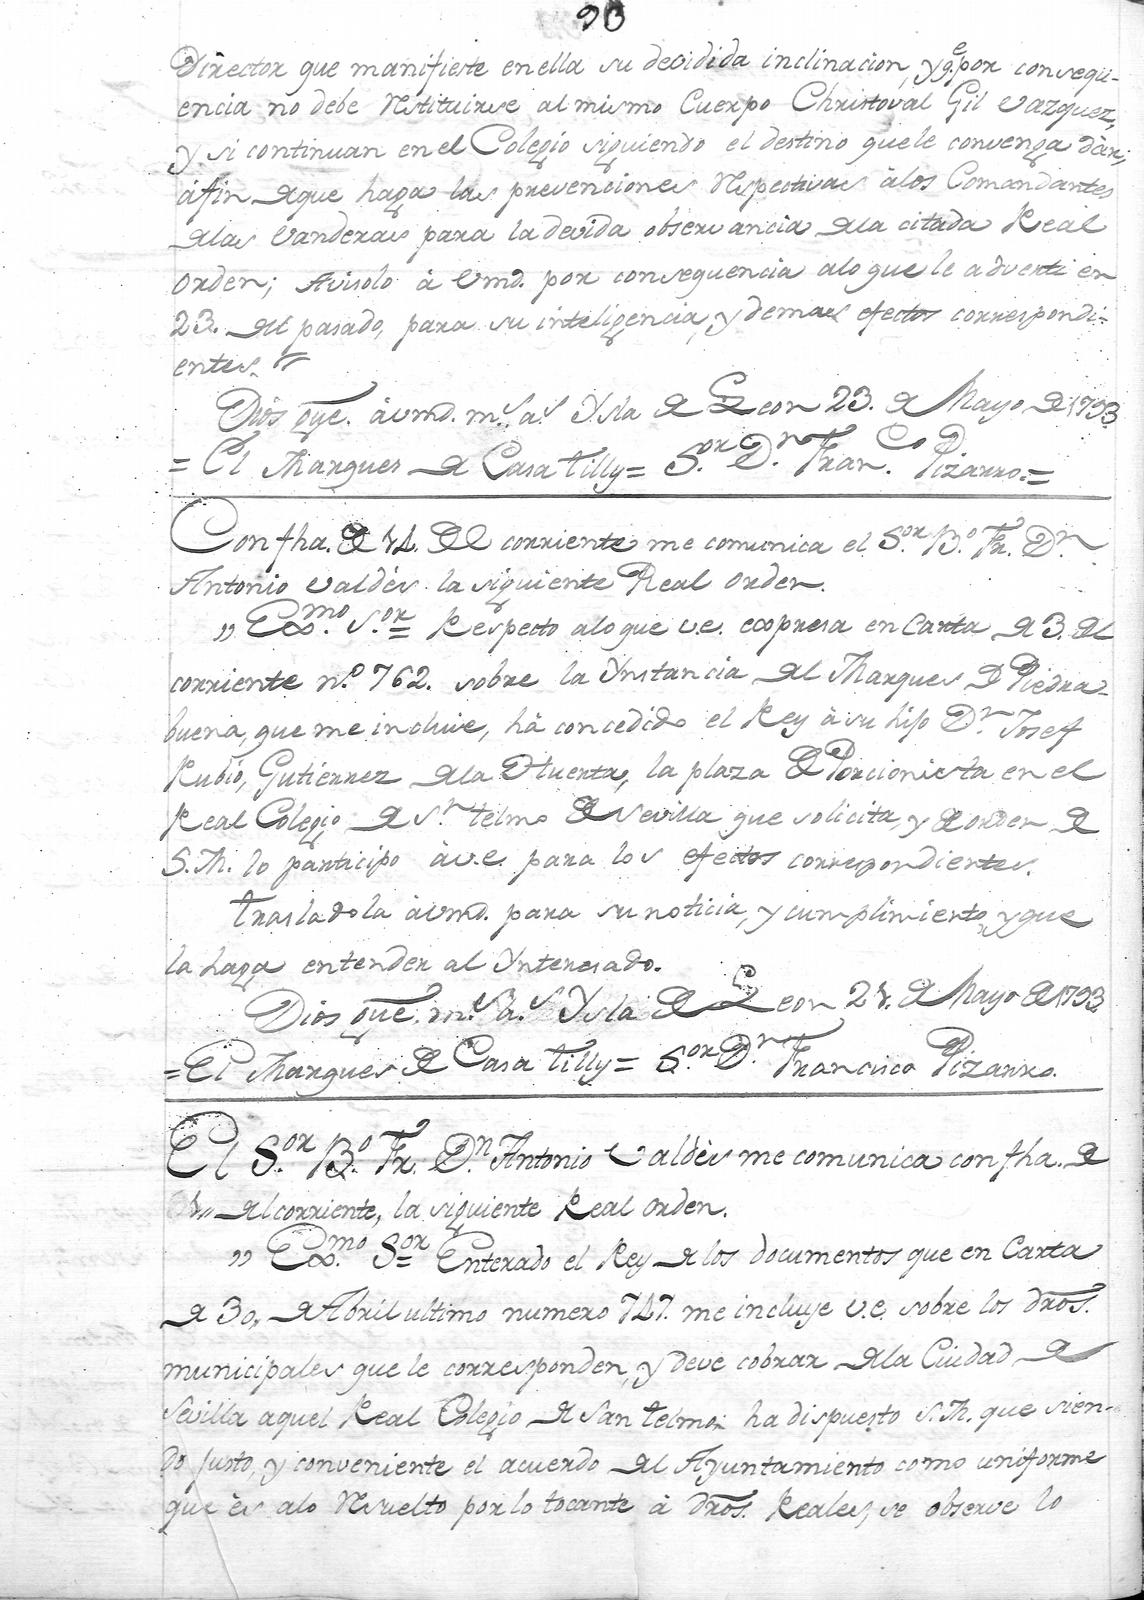 93
Director que manifieste en ella su decidida inclinacion, y q.e por consequ-
encia no debe restituirse al mismo Cuerpo Christoval Gil Vazquez,
y si continuar en el Colegio siguiendo el destino que le convenga dàr;
à fin de que haga las prevenciones respectivas à los Comandantes
de las Vanderas para la devida observancia de la citada Real
Orden; Avisolo à Vmd. por consequencia alo que le adverti en
23. del pasado, para su inteligencia, y demas efectos correspondi-
entes.
Dios gue. à vmd. m.s a.s Ysla de Leon 23. de Mayo de 1793
= El Marques de Casa Tilly = S.or D.n Fran.co Pizarro. =
Con fha. de 14. del corriente me comunica el S.or B.o Fr. D.n
Antonio Valdès la siguiente Real Orden.
,, Exmo. S.or = Respecto alo que v.e. expresa en Carta de 3. del
corriente n.o 762. sobre la Ynstancia del Marques de Piedra-
buena, que me incluie, hà concedido el Rey à su hijo D.n Josef
Rubio, Gutierrez de la Huerta, la plaza de Porcionista en el
Real Colegio de S.n Telmo de Sevilla que solicita, y de orden de
S.M. lo participo à v.e. para los efectos correspondientes.
Trasladola à vmd. para su noticia, y cumplimiento, y que
la haga entender al Ynteresado.
Dios gue. m.s a.s Ysla de Leon 21. de Mayo de 1793
= El Marques de Casa Tilly = S.or D.n Francisco Pizarro.
El S.or B.o Fr. D.n Antonio Valdès me comunica con fha. de
del corriente, la siguiente Real Orden.
,, Exmo. S.or Enterado el Rey de los documentos que en Carta
de 30,, de Abril ultimo numero 747. me incluye v.e. sobre los dros.
municipales que le corresponden, y deve cobrar de la Ciudad de
Sevilla aquel Real Colegio de San Telmo; ha dispuesto S.M. que sien-
do justo, y conveniente el acuerdo del Ayuntamiento como uniforme
que ès alo resuelto por lo tocante à dros. Reales, se observe lo